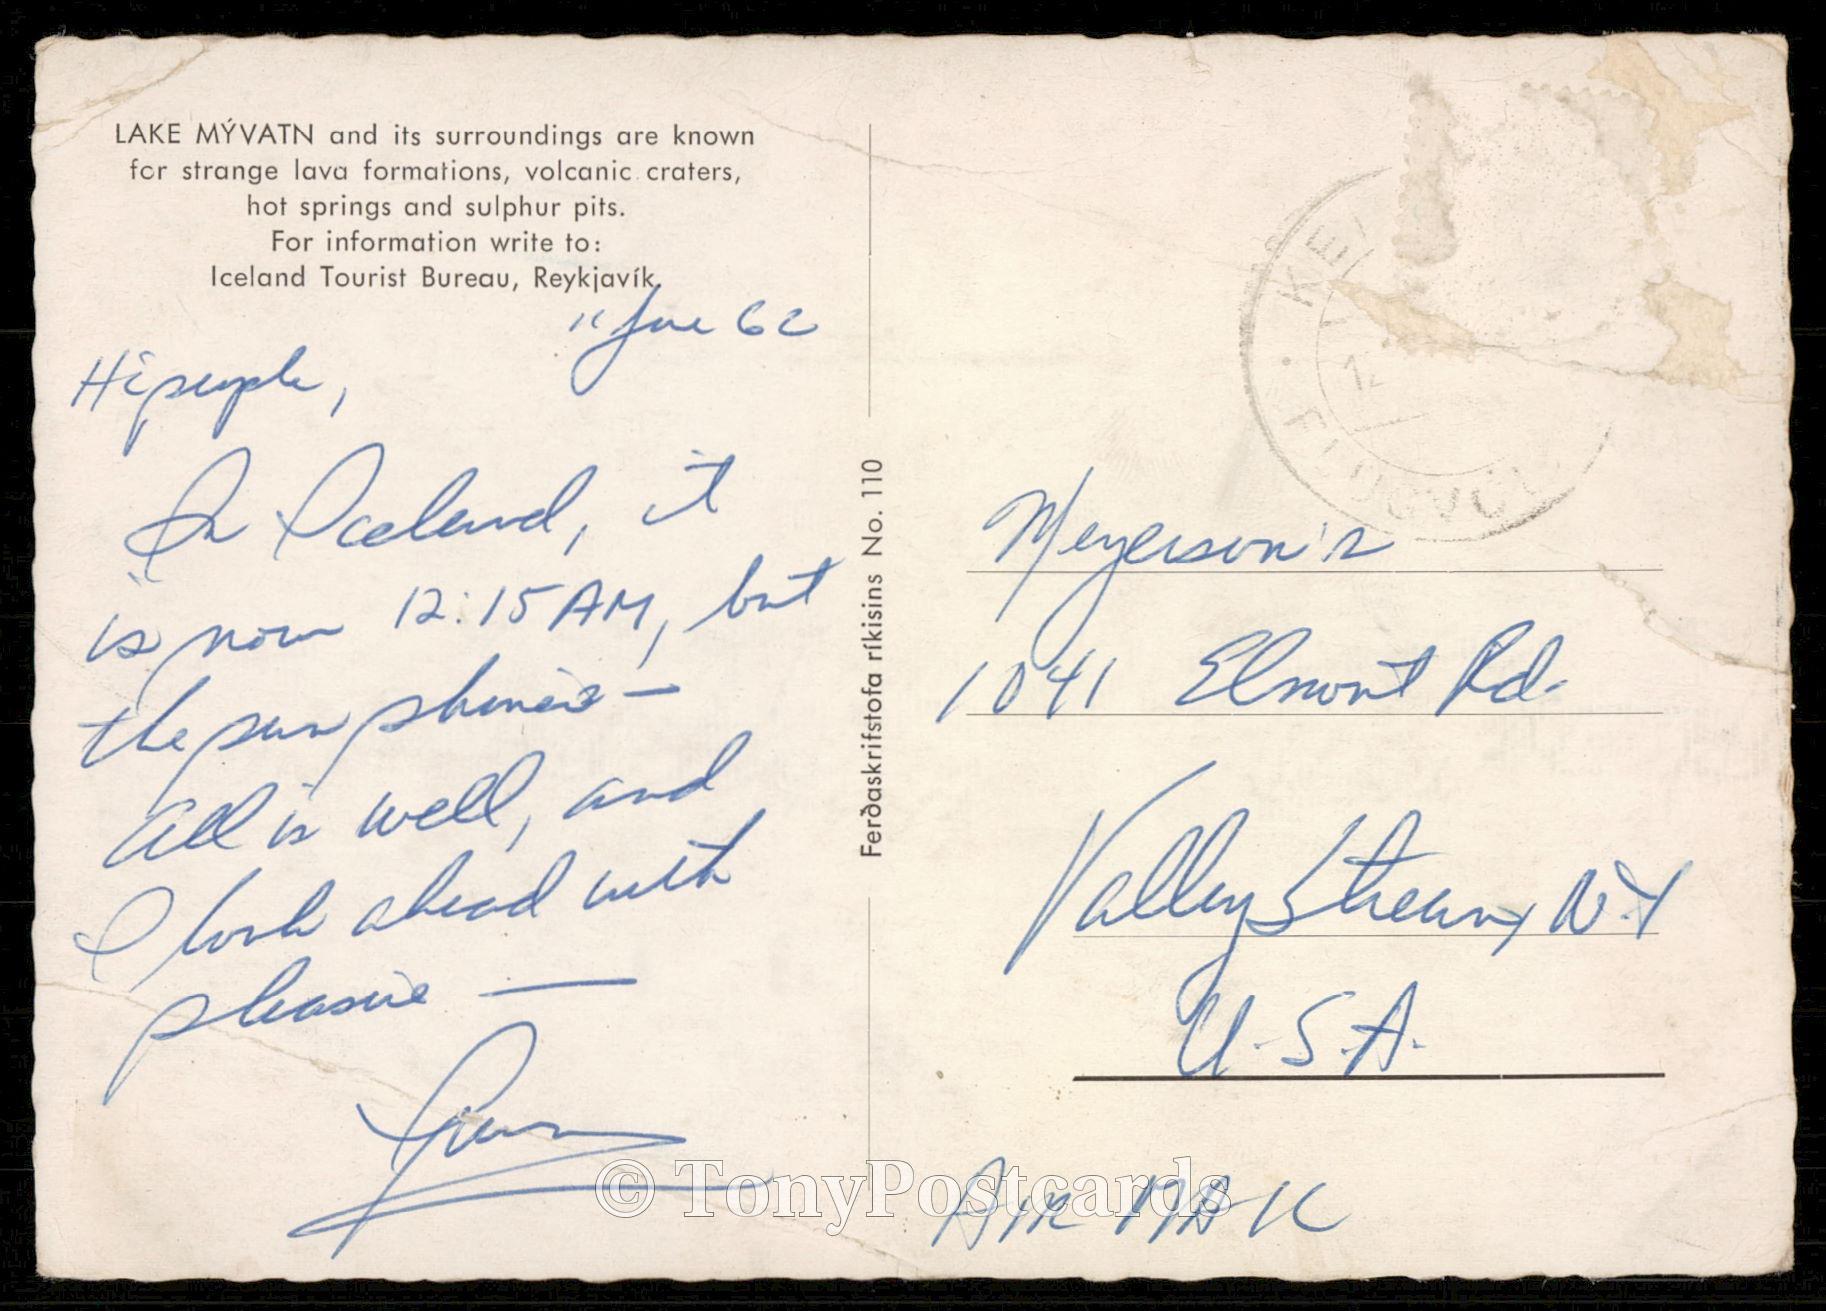 LAKE MÝVATN and its surroundings are known
for strange lava formations, volcanic craters,
hot springs and sulphur pits.
For information write to:
Iceland Tourist Bureau, Reykjavík
11 June 62
Hi people,
In Iceland, it
is now 12:15 AM, but
the sun shines —
All is well, and
I look ahead with
pleasure —
Ferðaskrifstofa ríkisins No. 110
Meyerson's
1041 Elmont Rd.
Valley Stream, N.Y
U.S.A.
AIR MAIL
© TonyPostcards